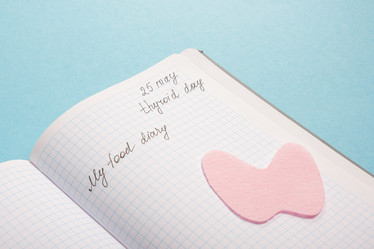 25 may
thyroid day
My food diary